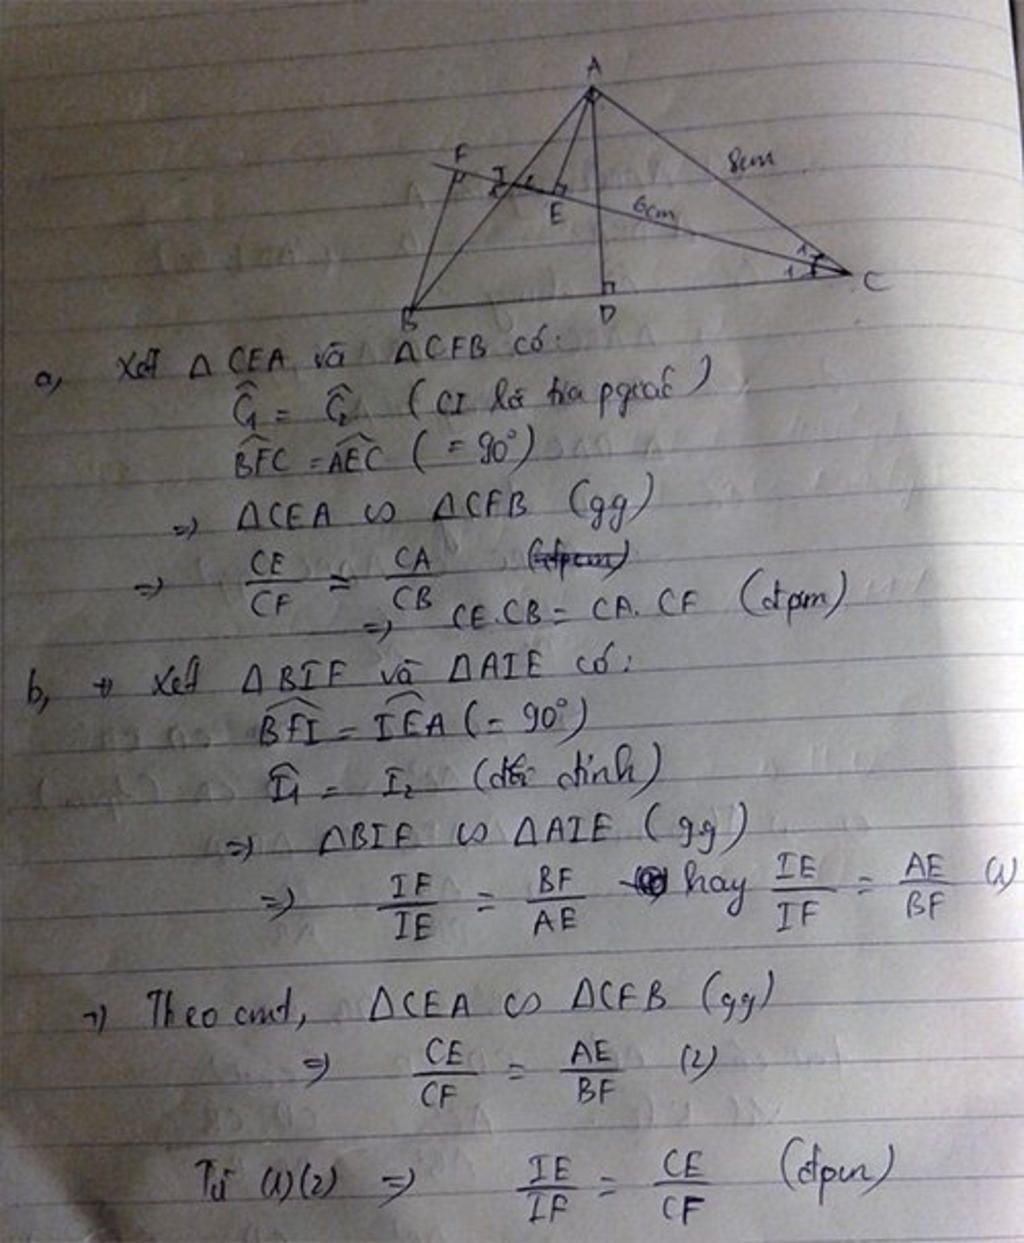 A
8cm
F
I
E
6cm
1
1
C
B
D
a, Xét Δ CEA và ΔCFB có:
Ĉ₁ = Ĉ₂ (CI là tia pgiác)
BFC = AEC ( = 90°)
=> ΔCEA ∽ ΔCFB (gg)
=> CE/CF = CA/CB
=> CE.CB = CA.CF (đpcm)
b, + Xét ΔBIF và ΔAIE có:
BFI = IEA (= 90°)
Î₁ = I₂ (đối đỉnh)
=> ΔBIF ∽ ΔAIE (gg)
=> IF/IE = BF/AE hay IE/IF = AE/BF (1)
Theo cmt, ΔCEA ∽ ΔCFB (gg)
=> CE/CF = AE/BF (2)
Từ (1)(2) => IE/IF = CE/CF (đpcm)